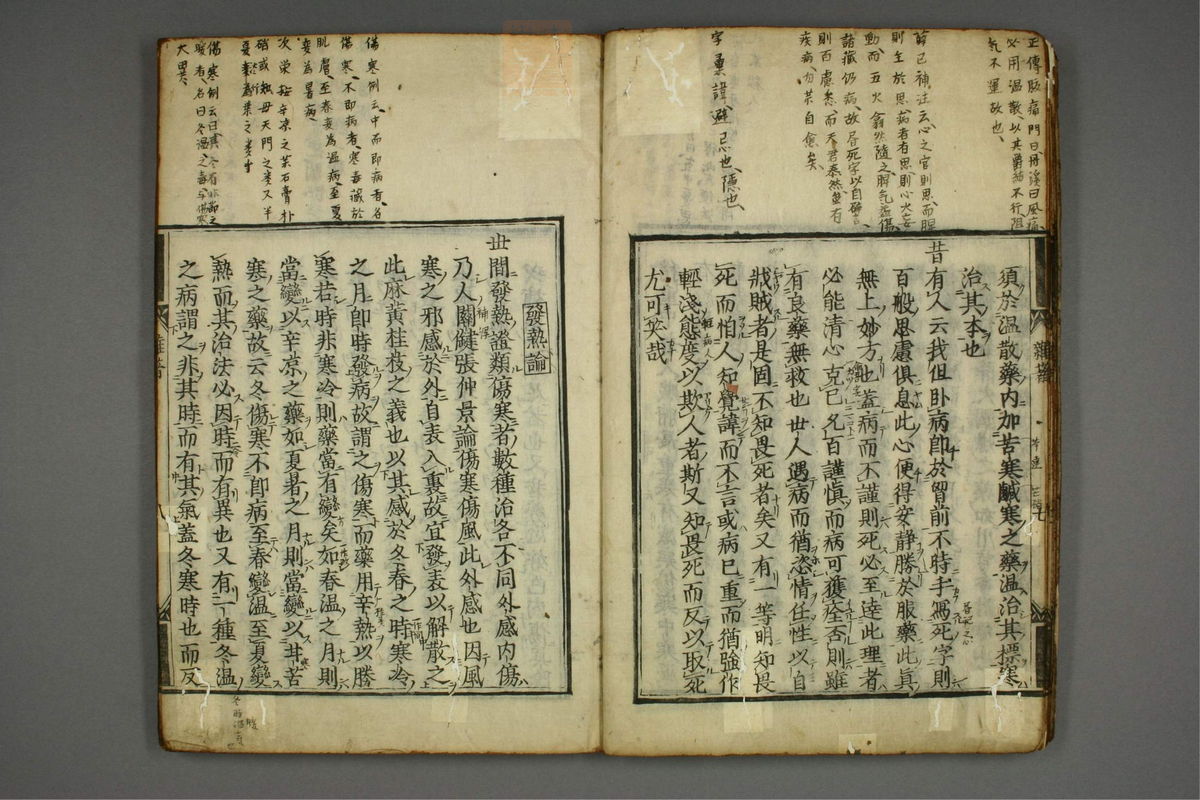 正傳脈痛門曰丹溪曰風痛
必用温散以其欝結不行阻
氣不運故也
薛己補註云心之官則思而脾
則主於思病者有思則心火妄
動而五火翕然隨之脾氣益傷
諸藏仍病故居死字以自
則百慮息而天君泰然雖有
疾病勿藥自愈矣
字彙諱避忌也隱也
須於温散藥内加苦寒鹹寒之藥温治其標寒
治其本也
昔有人云我但卧病即於胷前不時手寫死字則
百般思慮俱息此心便得安靜勝於服藥此真
無上妙方也蓋病而不謹則死必至達此理者
必能清心克己凡百謹慎而病可獲痊否則雖
有良藥無救也世人遇病而猶恣情任性以自
戕賊者是固不知畏死者矣又有一等明知畏
死而怕人知覺諱而不言或病已重而猶強作
輕淺態度以欺人者斯又知畏死而反以取死
尤可笑哉
雜著
七
傷寒例云中而即病者名
傷寒不即病者寒毒藏於
肌膚至春變為温病至夏
變為暑病
次栄辛涼之藥石膏朴
硝或知母天門之类又羊
傷寒例云曰其冬有非節之
暖者名曰冬温之毒与傷寒
大異
發熱論
世間發熱證類傷寒者數種治各不同外感内傷
乃人關鍵張仲景論傷寒傷風此外感也因風
寒之邪感於外自表入裏故宜發表以解散之
此麻黄桂枝之義也以其感於冬春之時寒冷
之月即時發病故謂之傷寒而藥用辛熱以勝
寒若時非寒冷則藥當有變矣如春温之月則
當變以辛凉之藥如夏暑之月則當變以甘苦
寒之藥故云冬傷寒不即病至春變温至夏變
熱而其治法必因時而有異也又有一種冬温
之病謂之非其時而有其氣蓋冬寒時也而反
雜著
八